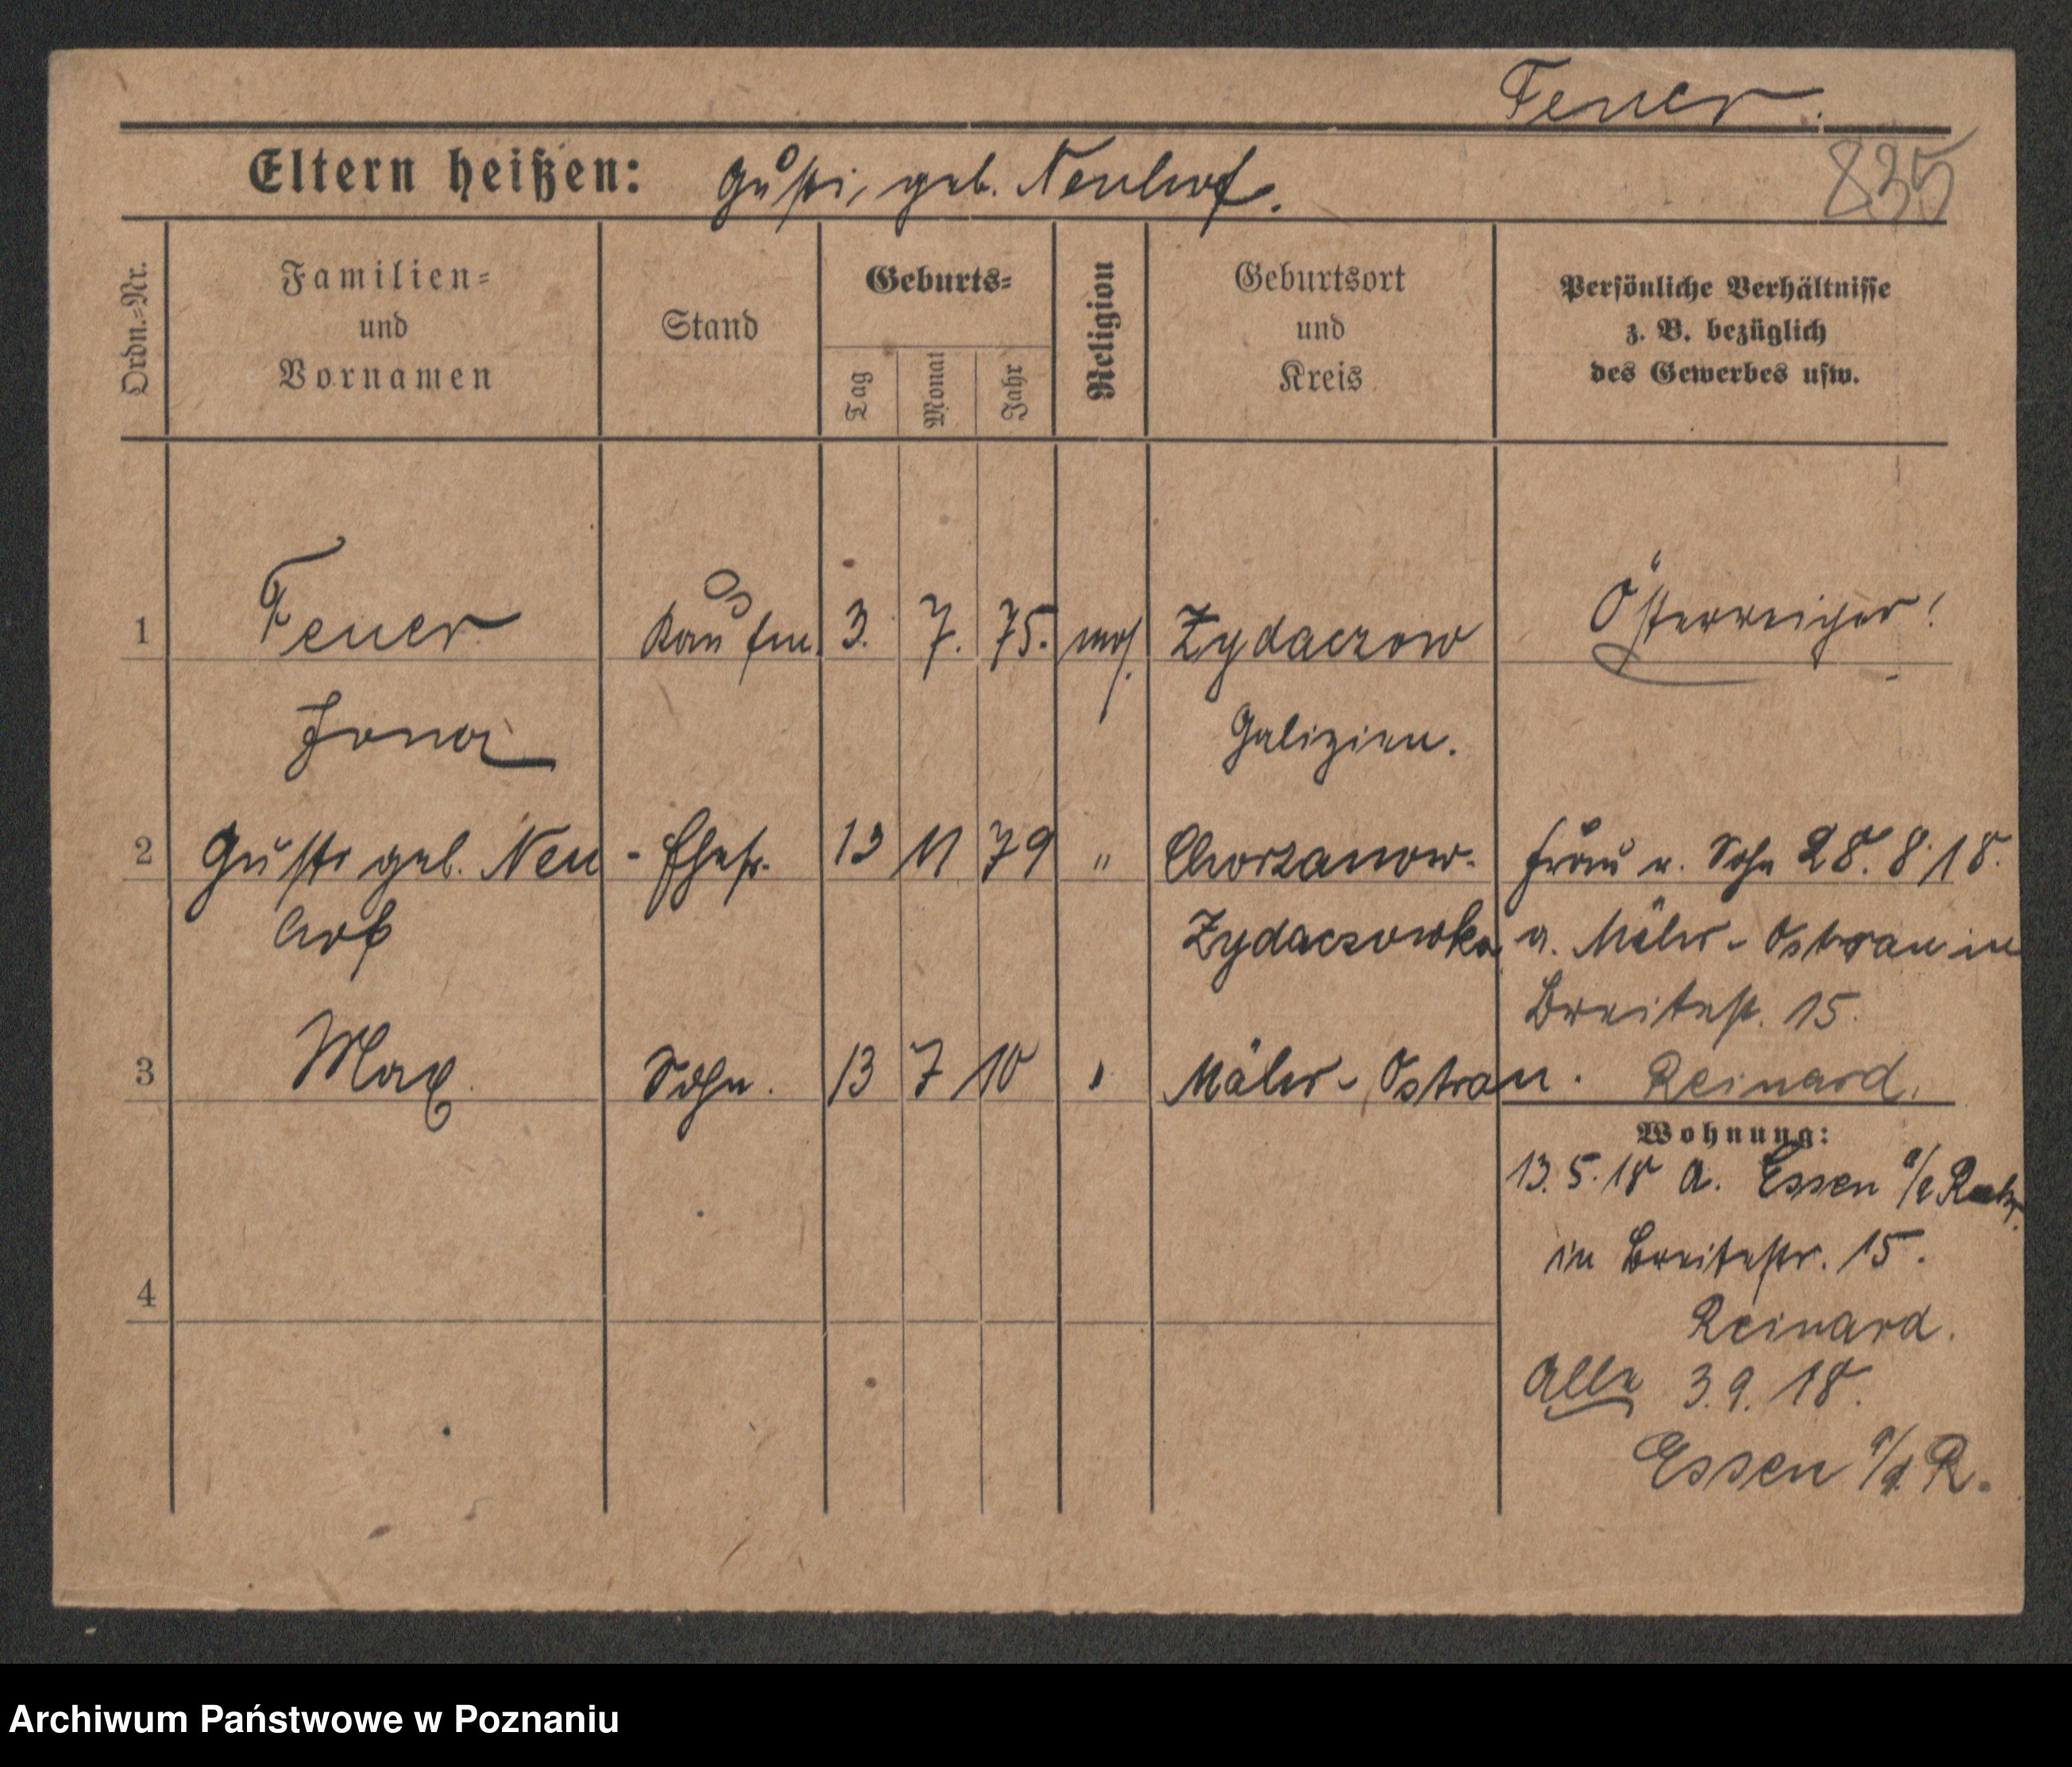 Feuer.
835
Eltern heißen: Gusti, geb. Neuhof.
Ordn.=Nr.
Familien=
und
Vornamen
Stand
Geburts=
Tag
Monat
Jahr
Religion
Geburtsort
und
Kreis
Persönliche Verhältnisse
z. B. bezüglich
des Gewerbes usw.
1 Feuer Kaufm. 3. 7. 75. mos. Zydaczow Österreicher!
Jona Galizien.
2 Gusti geb. Neu - Ehefr. 12 11 79 " Chorzanow- Frau u. Sohn 28.8.18.
hof Zydaczowka a. Mähr-Ostrau in
Breitestr. 15.
3 Max. Sohn. 13 7 10 " Mähr-Ostrau. Reinard.
Wohnung:
13.5.18 a. Essen a/R Ruhr.
in Breitestr. 15.
Reinard.
4
Alle 3.9.18.
Essen a/d R.
Archiwum Państwowe w Poznaniu